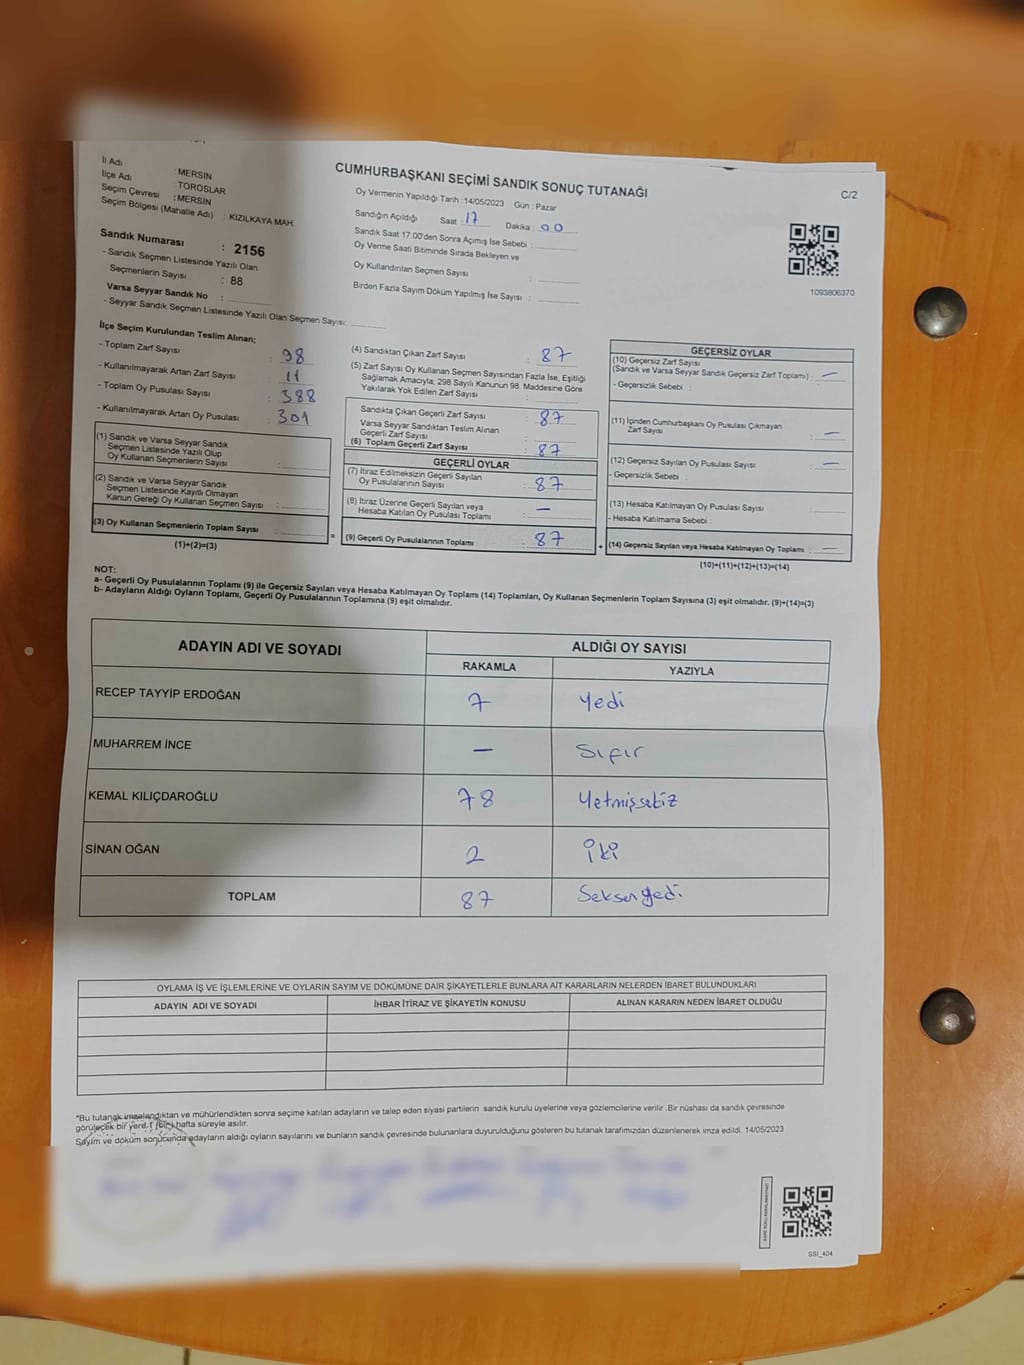 İl Adı : MERSİN
İlçe Adı : TOROSLAR
Seçim Çevresi : MERSİN
Seçim Bölgesi (Mahalle Adı) : KIZILKAYA MAH.
Sandık Numarası : 2156
- Sandık Seçmen Listesinde Yazılı Olan
Seçmenlerin Sayısı : 88
Varsa Seyyar Sandık No :
- Seyyar Sandık Seçmen Listesinde Yazılı Olan Seçmen Sayısı:
CUMHURBAŞKANI SEÇİMİ SANDIK SONUÇ TUTANAĞI
C/2
Oy Vermenin Yapıldığı Tarih : 14/05/2023 Gün : Pazar
Sandığın Açıldığı Saat : 17 Dakika : 00
Sandık Saat 17.00'den Sonra Açımış İse Sebebi :
Oy Verme Saati Bitiminde Sırada Bekleyen ve
Oy Kullandırılan Seçmen Sayısı :
Birden Fazla Sayım Döküm Yapılmış İse Sayısı :
1093806370
İlçe Seçim Kurulundan Teslim Alınan;
- Toplam Zarf Sayısı : 98
- Kullanılmayarak Artan Zarf Sayısı : 11
- Toplam Oy Pusulası Sayısı : 388
- Kullanılmayarak Artan Oy Pusulası : 301
(1) Sandık ve Varsa Seyyar Sandık
Seçmen Listesinde Yazılı Olup
Oy Kullanan Seçmenlerin Sayısı :
(2) Sandık ve Varsa Seyyar Sandık
Seçmen Listesinde Kayıtlı Olmayan
Kanun Gereği Oy Kullanan Seçmen Sayısı :
(3) Oy Kullanan Seçmenlerin Toplam Sayısı :
(1)+(2)=(3)
=
(4) Sandıktan Çıkan Zarf Sayısı : 87
(5) Zarf Sayısı Oy Kullanan Seçmen Sayısından Fazla İse, Eşitliği
Sağlamak Amacıyla; 298 Sayılı Kanunun 98. Maddesine Göre
Yakılarak Yok Edilen Zarf Sayısı :
Sandıkta Çıkan Geçerli Zarf Sayısı : 87
Varsa Seyyar Sandıktan Teslim Alınan
Geçerli Zarf Sayısı :
(6) Toplam Geçerli Zarf Sayısı : 87
GEÇERLİ OYLAR
(7) İtiraz Edilmeksizin Geçerli Sayılan
Oy Pusulalarının Sayısı : 87
(8) İtiraz Üzerine Geçerli Sayılan veya
Hesaba Katılan Oy Pusulası Toplamı : —
(9) Geçerli Oy Pusulalarının Toplamı : 87
+
GEÇERSİZ OYLAR
(10) Geçersiz Zarf Sayısı
(Sandık ve Varsa Seyyar Sandık Geçersiz Zarf Toplamı) : —
- Geçersizlik Sebebi :
(11) İçinden Cumhurbaşkanı Oy Pusulası Çıkmayan
Zarf Sayısı : —
(12) Geçersiz Sayılan Oy Pusulası Sayısı : —
- Geçersizlik Sebebi :
(13) Hesaba Katılmayan Oy Pusulası Sayısı :
- Hesaba Katılmama Sebebi :
(14) Geçersiz Sayılan veya Hesaba Katılmayan Oy Toplamı : —
(10)+(11)+(12)+(13)=(14)
NOT:
a- Geçerli Oy Pusulalarının Toplamı (9) ile Geçersiz Sayılan veya Hesaba Katılmayan Oy Toplamı (14) Toplamları, Oy Kullanan Seçmenlerin Toplam Sayısına (3) eşit olmalıdır. (9)+(14)=(3)
b- Adayların Aldığı Oyların Toplamı, Geçerli Oy Pusulalarının Toplamına (9) eşit olmalıdır.
ADAYIN ADI VE SOYADI ALDIĞI OY SAYISI
RAKAMLA YAZIYLA
RECEP TAYYİP ERDOĞAN 7 Yedi
MUHARREM İNCE — Sıfır
KEMAL KILIÇDAROĞLU 78 Yetmişsekiz
SİNAN OĞAN 2 İki
TOPLAM 87 Seksenyedi
OYLAMA İŞ VE İŞLEMLERİNE VE OYLARIN SAYIM VE DÖKÜMÜNE DAİR ŞİKAYETLERLE BUNLARA AİT KARARLARIN NELERDEN İBARET BULUNDUKLARI
ADAYIN ADI VE SOYADI İHBAR İTİRAZ VE ŞİKAYETİN KONUSU ALINAN KARARIN NEDEN İBARET OLDUĞU
*Bu tutanak imzalandıktan ve mühürlendikten sonra seçime katılan adayların ve talep eden siyasi partilerin sandık kurulu üyelerine veya gözlemcilerine verilir. Bir nüshası da sandık çevresinde
görülecek bir yerde 1 (bir) hafta süreyle asılır.
Sayım ve döküm sonucunda adayların aldığı oyların sayılarını ve bunların sandık çevresinde bulunanlara duyurulduğunu gösteren bu tutanak tarafımızdan düzenlenerek imza edildi. 14/05/2023
SSI_404